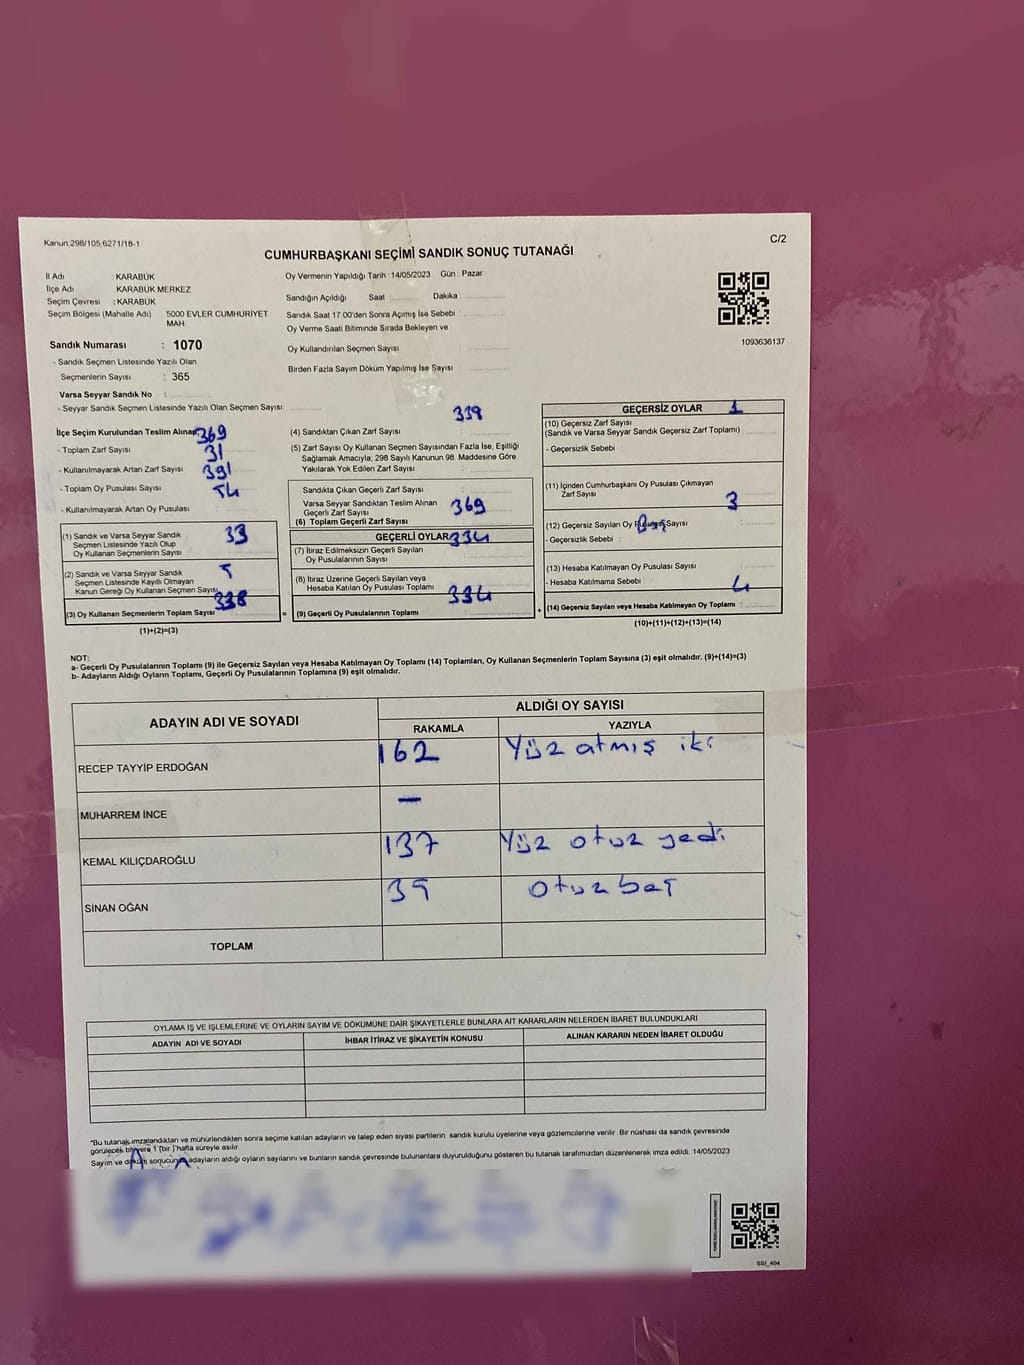 Kanun,298/105,6271/18-1
C/2
CUMHURBAŞKANI SEÇİMİ SANDIK SONUÇ TUTANAĞI
İl Adı : KARABÜK
İlçe Adı KARABÜK MERKEZ
Seçim Çevresi : KARABÜK
Seçim Bölgesi (Mahalle Adı) 5000 EVLER CUMHURİYET
MAH
Sandık Numarası : 1070
- Sandık Seçmen Listesinde Yazılı Olan
Seçmenlerin Sayısı : 365
Varsa Seyyar Sandık No :
- Seyyar Sandık Seçmen Listesinde Yazılı Olan Seçmen Sayısı:
Oy Vermenin Yapıldığı Tarih : 14/05/2023 Gün : Pazar
Sandığın Açıldığı Saat Dakika
Sandık Saat 17.00'den Sonra Açımış İse Sebebi
Oy Verme Saati Bitiminde Sırada Bekleyen ve
Oy Kullandırılan Seçmen Sayısı
Birden Fazla Sayım Döküm Yapılmış İse Sayısı
1093636137
İlçe Seçim Kurulundan Teslim Alınan 369
- Toplam Zarf Sayısı 31
- Kullanılmayarak Artan Zarf Sayısı 391
- Toplam Oy Pusulası Sayısı 54
- Kullanılmayarak Artan Oy Pusulası
(1) Sandık ve Varsa Seyyar Sandık
Seçmen Listesinde Yazılı Olup
Oy Kullanan Seçmenlerin Sayısı
33
(2) Sandık ve Varsa Seyyar Sandık
Seçmen Listesinde Kayıtlı Olmayan
Kanun Gereği Oy Kullanan Seçmen Sayısı
5
338
(3) Oy Kullanan Seçmenlerin Toplam Sayısı
(1)+(2)=(3)
339
(4) Sandıktan Çıkan Zarf Sayısı
(5) Zarf Sayısı Oy Kullanan Seçmen Sayısından Fazla İse, Eşitliği
Sağlamak Amacıyla, 298 Sayılı Kanunun 98. Maddesine Göre
Yakılarak Yok Edilen Zarf Sayısı
Sandıkta Çıkan Geçerli Zarf Sayısı
Varsa Seyyar Sandıktan Teslim Alınan
Geçerli Zarf Sayısı
369
(6) Toplam Geçerli Zarf Sayısı
GEÇERLİ OYLAR 334
(7) İtiraz Edilmeksizin Geçerli Sayılan
Oy Pusulalarının Sayısı
(8) İtiraz Üzerine Geçerli Sayılan veya
Hesaba Katılan Oy Pusulası Toplamı
334
= (9) Geçerli Oy Pusulalarının Toplamı +
GEÇERSİZ OYLAR 1
(10) Geçersiz Zarf Sayısı
(Sandık ve Varsa Seyyar Sandık Geçersiz Zarf Toplamı)
- Geçersizlik Sebebi :
(11) İçinden Cumhurbaşkanı Oy Pusulası Çıkmayan
Zarf Sayısı
3
(12) Geçersiz Sayılan Oy Pusulası Sayısı
- Geçersizlik Sebebi : Boş
(13) Hesaba Katılmayan Oy Pusulası Sayısı
- Hesaba Katılmama Sebebi :
4
(14) Geçersiz Sayılan veya Hesaba Katılmayan Oy Toplamı :
(10)+(11)+(12)+(13)=(14)
NOT:
a- Geçerli Oy Pusulalarının Toplamı (9) ile Geçersiz Sayılan veya Hesaba Katılmayan Oy Toplamı (14) Toplamları, Oy Kullanan Seçmenlerin Toplam Sayısına (3) eşit olmalıdır. (9)+(14)=(3)
b- Adayların Aldığı Oyların Toplamı, Geçerli Oy Pusulalarının Toplamına (9) eşit olmalıdır.
ADAYIN ADI VE SOYADI
ALDIĞI OY SAYISI
RAKAMLA YAZIYLA
RECEP TAYYİP ERDOĞAN 162 Yüz atmış iki
MUHARREM İNCE —
KEMAL KILIÇDAROĞLU 137 Yüz otuz yedi
SİNAN OĞAN 35 otuz beş
TOPLAM
OYLAMA İŞ VE İŞLEMLERİNE VE OYLARIN SAYIM VE DÖKÜMÜNE DAİR ŞİKAYETLERLE BUNLARA AİT KARARLARIN NELERDEN İBARET BULUNDUKLARI
ADAYIN ADI VE SOYADI İHBAR İTİRAZ VE ŞİKAYETİN KONUSU ALINAN KARARIN NEDEN İBARET OLDUĞU
*Bu tutanak imzalandıktan ve mühürlendikten sonra seçime katılan adayların ve talep eden siyasi partilerin sandık kurulu üyelerine veya gözlemcilerine verilir. Bir nüshası da sandık çevresinde
görülecek bir yere 1 (bir ) hafta süreyle asılır.
Sayım ve döküm sonucunu, adayların aldığı oyların sayılarını ve bunların sandık çevresinde bulunanlara duyurulduğunu gösteren bu tutanak tarafımızdan düzenlenerek imza edildi. 14/05/2023
SSI_404